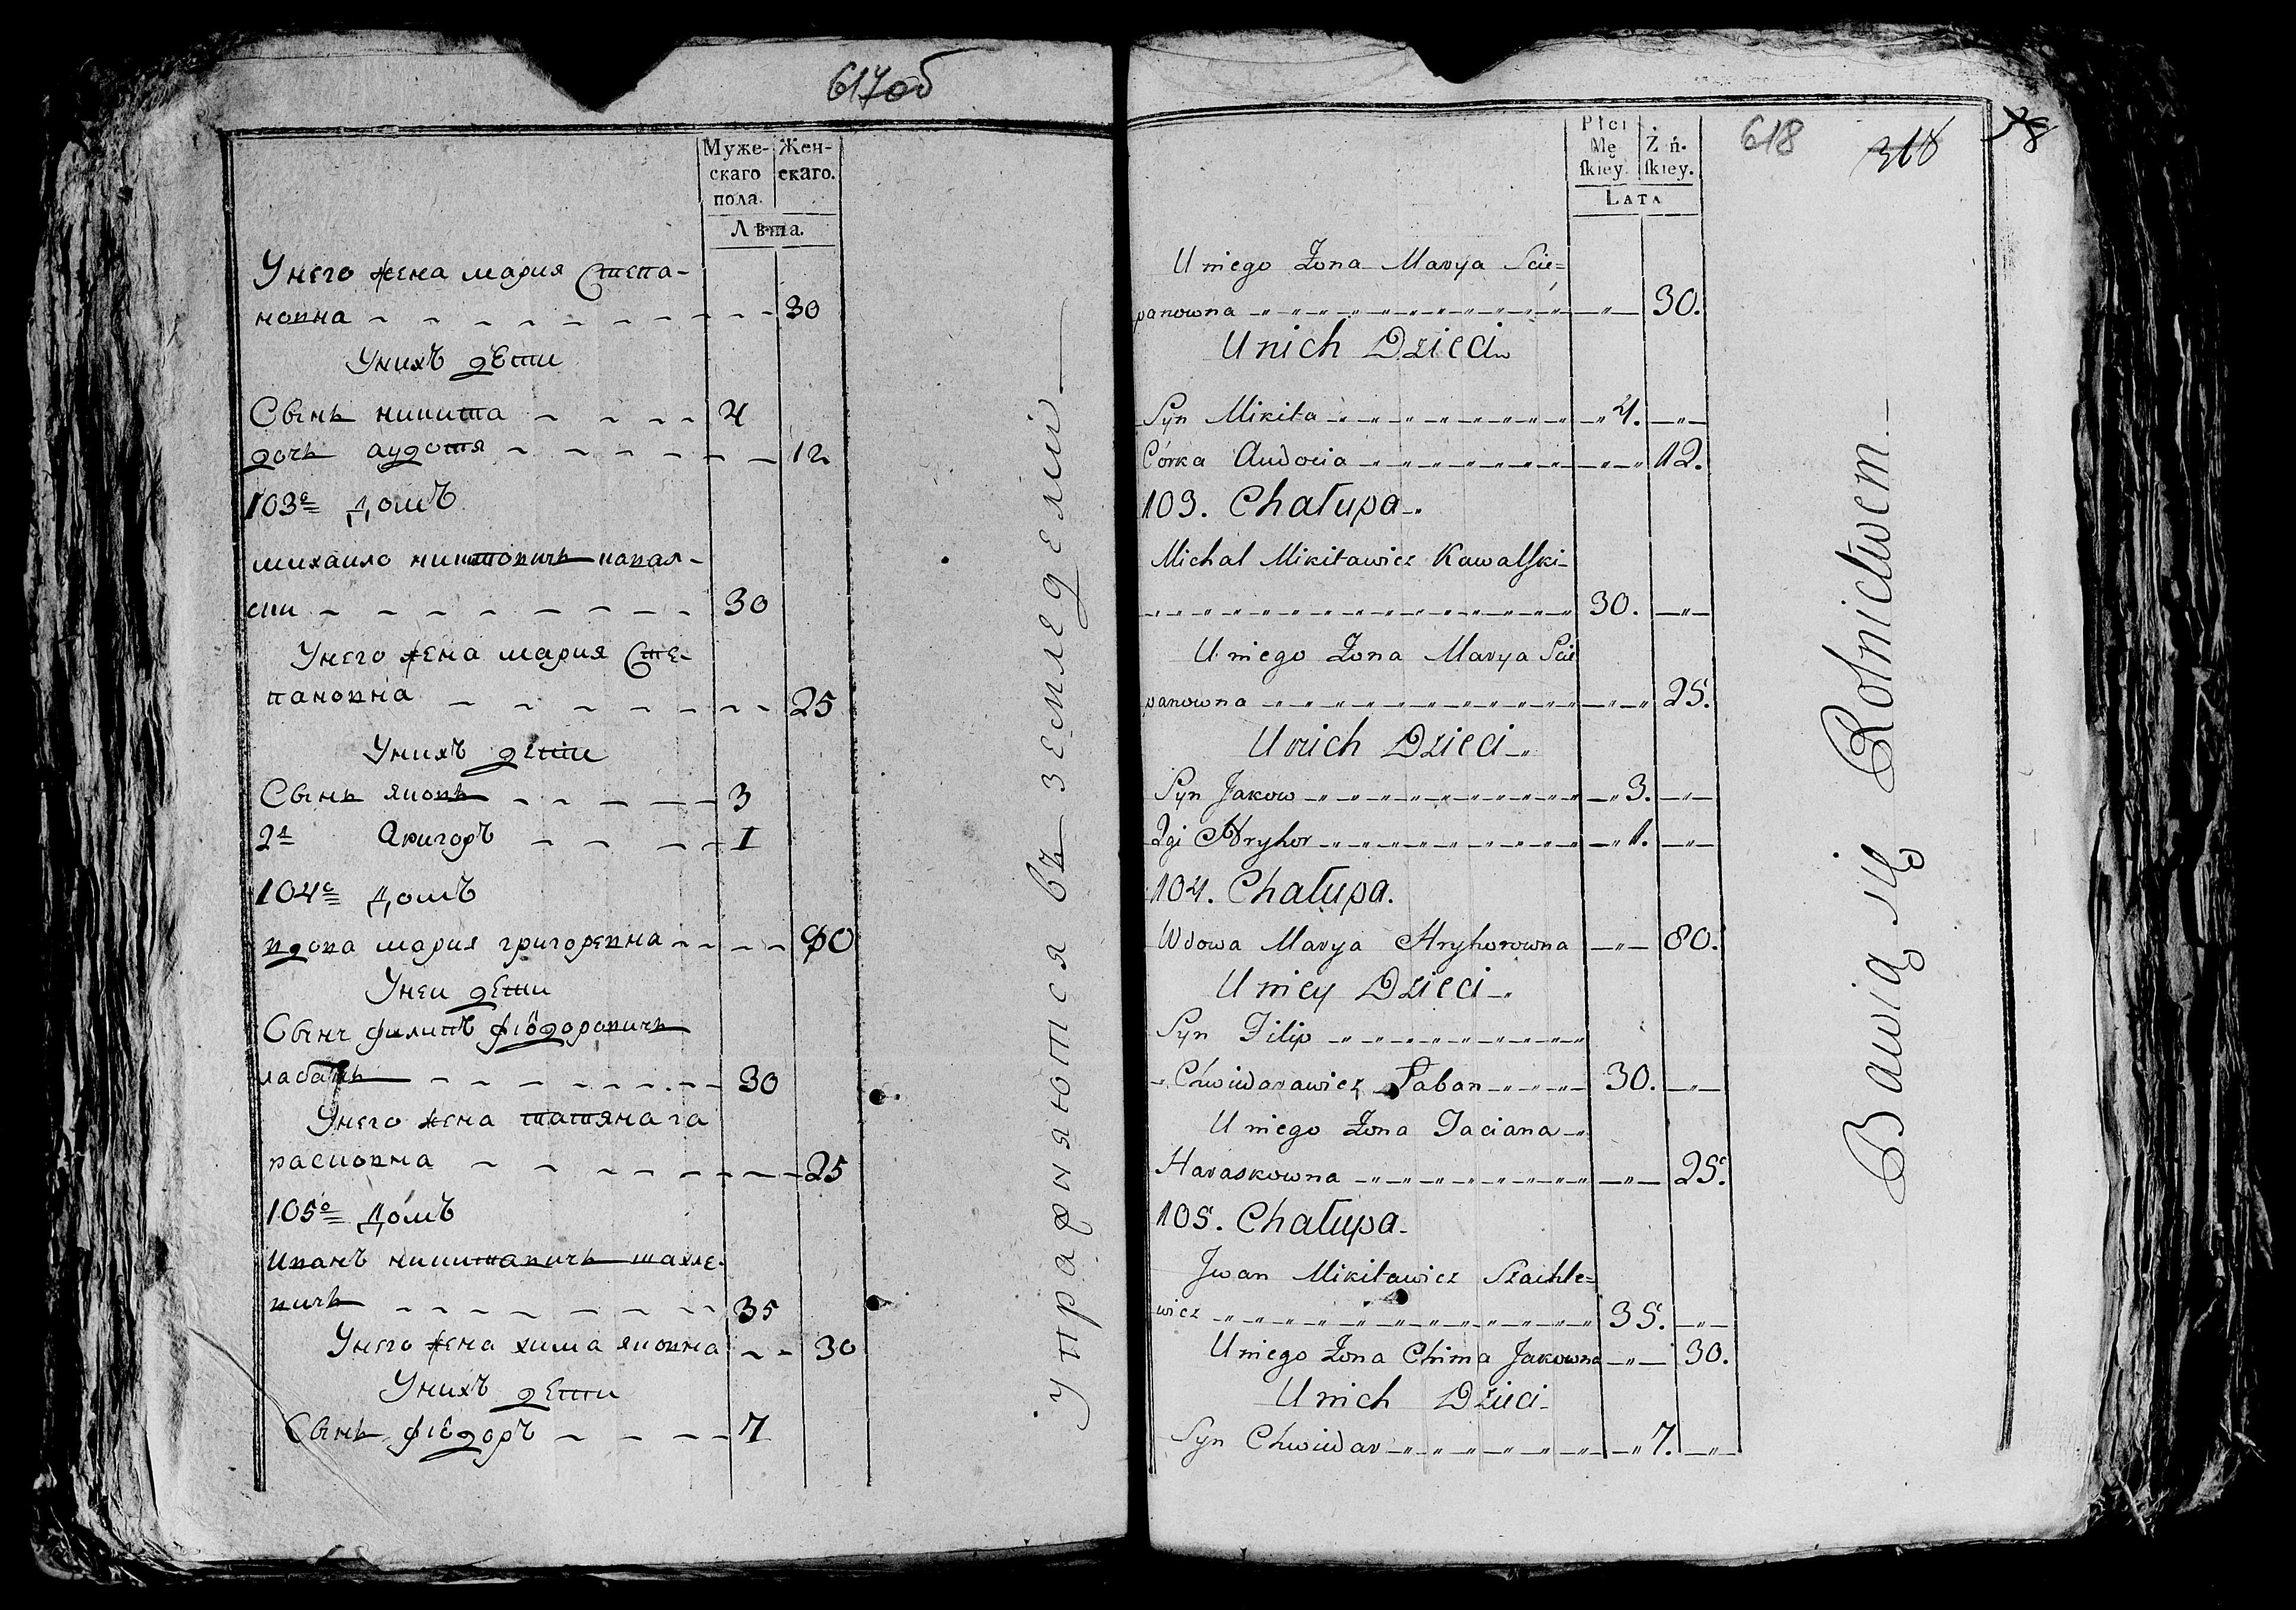 617об
Муже- Жен-
скаго скаго.
пола.
Лѣта.
Унего жена мария Степа-
новна 30
Унихъ дѣти
Сынъ никита 4
дочь аудотя 12
103е домъ
михаило никитовичь кавал-
ски 30
Унего жена мария Сте-
пановна 25
Унихъ дѣти
Сынъ яковъ 3
2й Григоръ 1
104е домъ
вдова мария григоревна 80
Унеи дѣти
Сынъ филипъ фіодоровичь
лабанъ 30
Унего жена татяна га
расковна 25
105е домъ
иванъ никитавичь шахле-
вичь 35
Унего жена хима яковна 30
Унихъ дѣти
Сынъ фіедоръ 7
упражняются въ земледелий
618 318
Płci
Mę Ż ń.
ſkiey. ſkiey.
Lata
U niego Żona Marya Scie=
panowna 30.
U nich Dzieci
Syn Mikita 4.
Córka Audocia 12.
103. Chałupa
Michał Mikitawicz Kawalſki
30.
U niego Żona Marya Scie
panowna 25.
U nich Dzieci
Syn Jakow 3.
2gi Hryhor 1.
104. Chałupa.
Wdowa Marya Hryhorowna 80.
U niey Dzieci
Syn Filip
Chwiudarawicz Łaban 30.
U niego Żona Taciana
Haraskowna 25.
105. Chałupa
Jwan Mikitawicz Szachle=
wicz 35.
U niego Żona Chima Jakowna 30.
U nich Dzieci
Syn Chwiudar 7.
Bawią się Rolnictwem